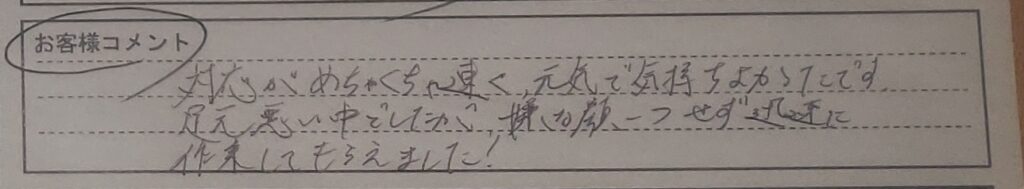 お客様コメント
対応がめちゃくちゃ速く、元気で気持ちよかったです。
足元悪い中でしたが、嫌な顔一つせず迅速に
作業してもらえました!